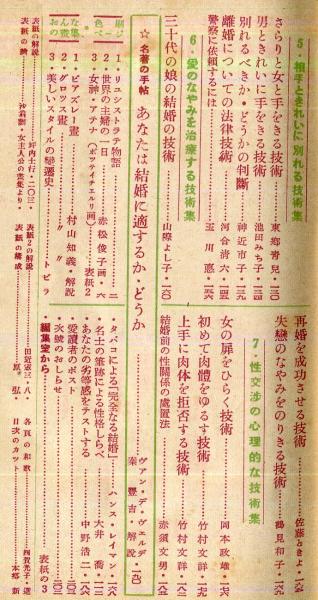 5・相手ときれいに別れる技術集
さらりと女と手をきる技術………東郷青児・一三〇
男ときれいに手をきる技術………池田みち子・一三四
別れるべきか・どうかの判断………神近市子・一三九
離婚についての法律技術………河合清六・一四五
警察に依頼するには………玉川惠・一五六
6・愛のなやみを治療する技術集
三十代の娘の結婚の技術………山際よし子・一六〇
再婚を成功させる技術………佐藤ときよ・
失戀のなやみをのりきる技術………鶴見和子・
7・性交渉の心理的な技術集
女の扉をひらく技術………岡本政雄・
初めて肉體をゆるす技術………竹村文祥・
上手に肉体を拒否する技術………竹村文祥・
結婚前の性關係の處置法………赤須文男・
☆名著の手帖 あなたは結婚に適するか・どうか………ヴァン・デ・ヴェルデ
秦豊吉・解説
色刷ページ
1・リュシストラテ物語
2・世界の主婦の一日………赤松俊子・画・六
3・女神・アテナ(ボッティチェルリ画)………表紙2
おんな の風 画集
1・ビアズレー畫………村山知義・解説
2・グロッス畫………〃 〃
3・美しいスタイルの變遷史………トビラ
タバコによる「完全なる結婚」………ハンス・レイマン・
名士の筆跡による性格しらべ………大井喬・
あなたの劣等感をテストする………中野浩二・
愛讀者のポスト
次號のおしらせ
・編集室から………表紙の3
表紙の解説………坪内士行・二〇三
表紙2の解説………田近憲三・八
表紙の構成………原弘・
各頁の和歌………四賀光子・選
目次のカット………本郷新